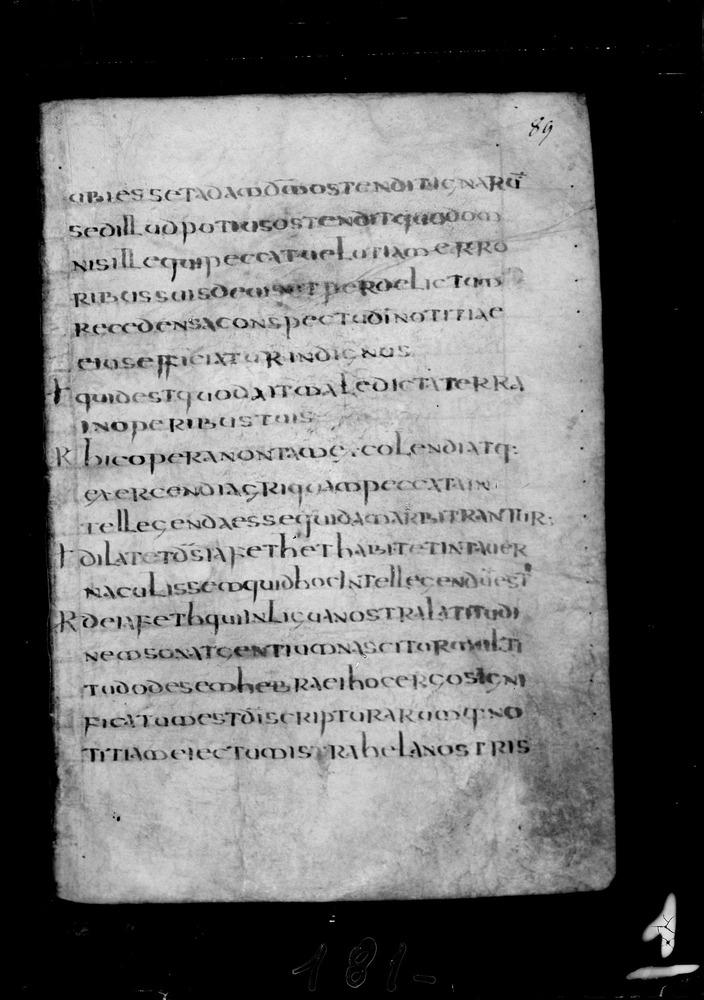 89
ubiessetadamdm̄ostenditignarū
sedilludpotiusostenditquodom
nisilliequipeccatueluтiamerro
ribussuisdeuisuperdelictum
recedensaconspectudinotitiae
eiusefficiaturindignus
quidestquodaitmaledictaterra
inoperibustuis
R hicoperanontam&colendiatq:
exercendiagriquampeccatain
tellegendaessequidamarbitrantur:
dilatetdsiafethethabitetintaber
naculissemquidhocintellegendūest
R deiafethquiinliguanostralatitudi
nemsonatgentiumnasciturmulti
tudodesemhebraeihocergosigni
ficatumestdiscripturarumq:no
titiameiectumisrahelanostris
181-
1